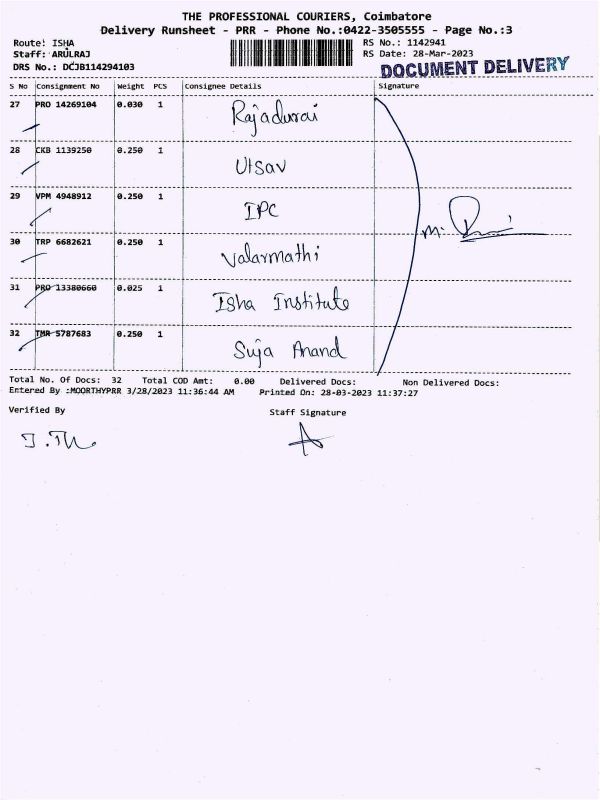 THE PROFESSIONAL COURIERS, Coimbatore
Delivery Runsheet - PRR - Phone No.:0422-3505555 - Page No.:3
Route: ISHA
Staff: ARULRAJ
DRS No.: DCJB114294103
RS No.: 1142941
RS Date: 28-Mar-2023
DOCUMENT DELIVERY
S No Consignment No Weight PCS Consignee Details Signature
27 PRO 14269104 0.030 1 Rajadurai
28 CKB 1139250 0.250 1 Utsav
29 VPM 4948912 0.250 1 IPC
30 TRP 6682621 0.250 1 Valarmathi
31 PRO 13380660 0.025 1 Isha Institute
32 TMR 5787683 0.250 1 Suja Anand
Total No. Of Docs: 32 Total COD Amt: 0.00 Delivered Docs: Non Delivered Docs:
Entered By :MOORTHYPRR 3/28/2023 11:36:44 AM Printed On: 28-03-2023 11:37:27
Verified By
Staff Signature